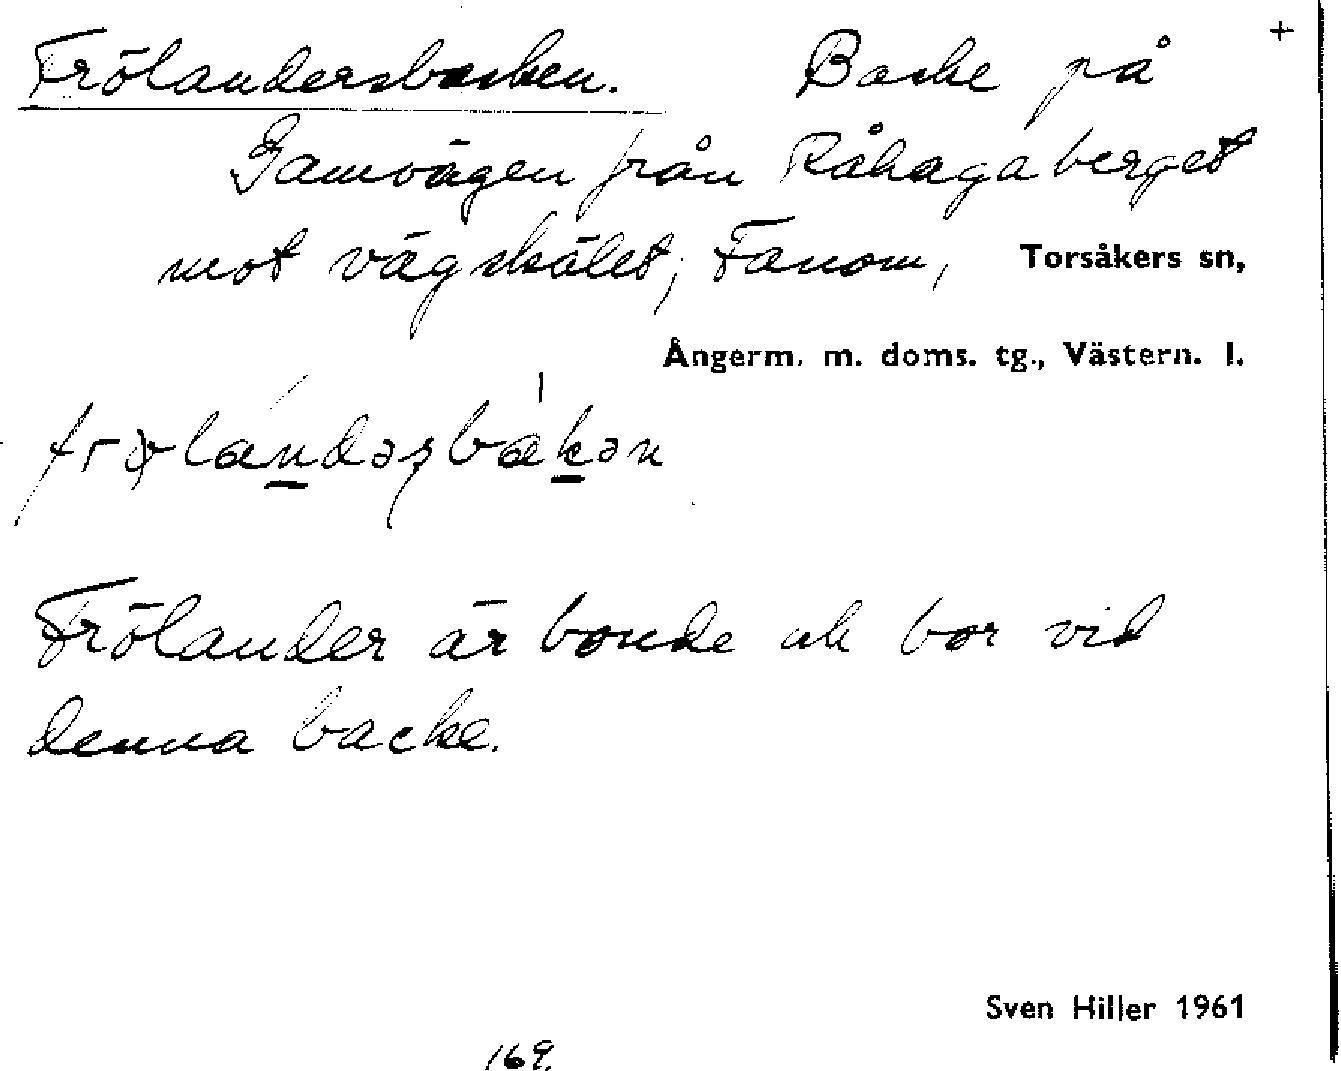 Frölandersbacken. Backe på +
Gamvägen från Råhagaberget
mot vägskälet, Fanom, Torsåkers sn,
Ångerm. m. doms. tg., Västern. l.
Frölander är bonde och bor vid
denna backe.
Sven Hiller 1961
169.